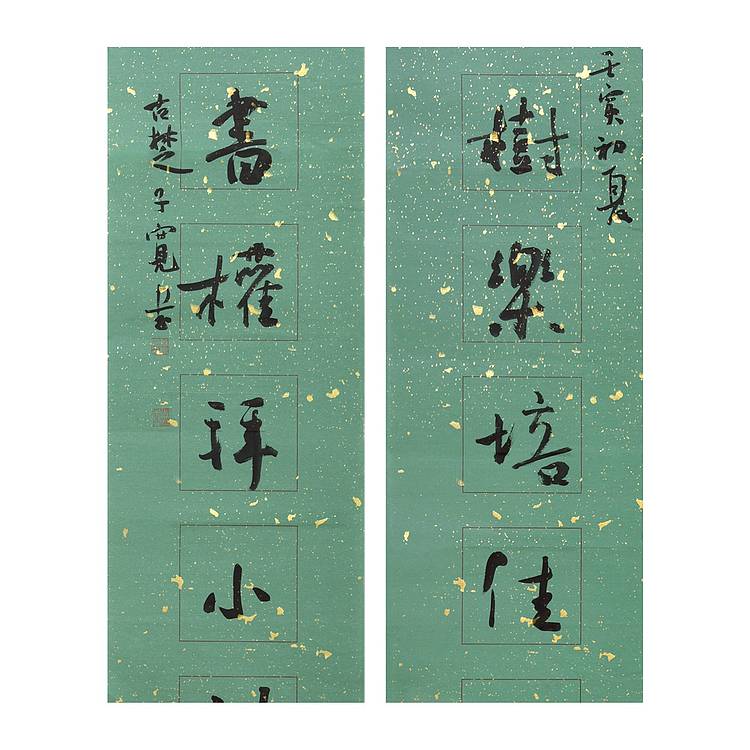 壬寅初夏
樹樂培佳
書權拜小
古楚子寬